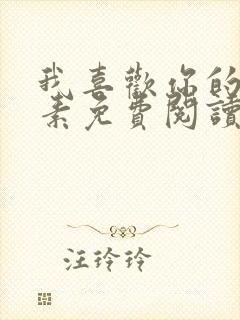 我喜歡你的
素免費閱讀
汪玲玲